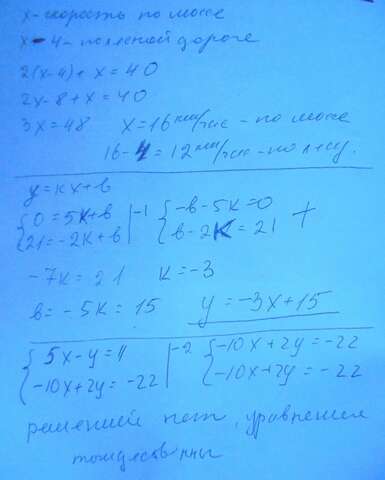 x - скорость по шоссе
x - 4 - по лесной дороге
2(x-4) + x = 40
2x - 8 + x = 40
3x = 48 x = 16 км/час - по шоссе
16 - 4 = 12 км/час - по лесу.
y = kx + b
{0 = 5k + b |-1 {-b - 5k = 0 +
{21 = -2k + b {b - 2k = 21
-7k = 21 k = -3
b = -5k = 15 y = -3x + 15
{5x - y = 11 |-2 {-10x + 2y = -22
{-10x + 2y = -22 {-10x + 2y = -22
решений нет, уравнения
тождественны